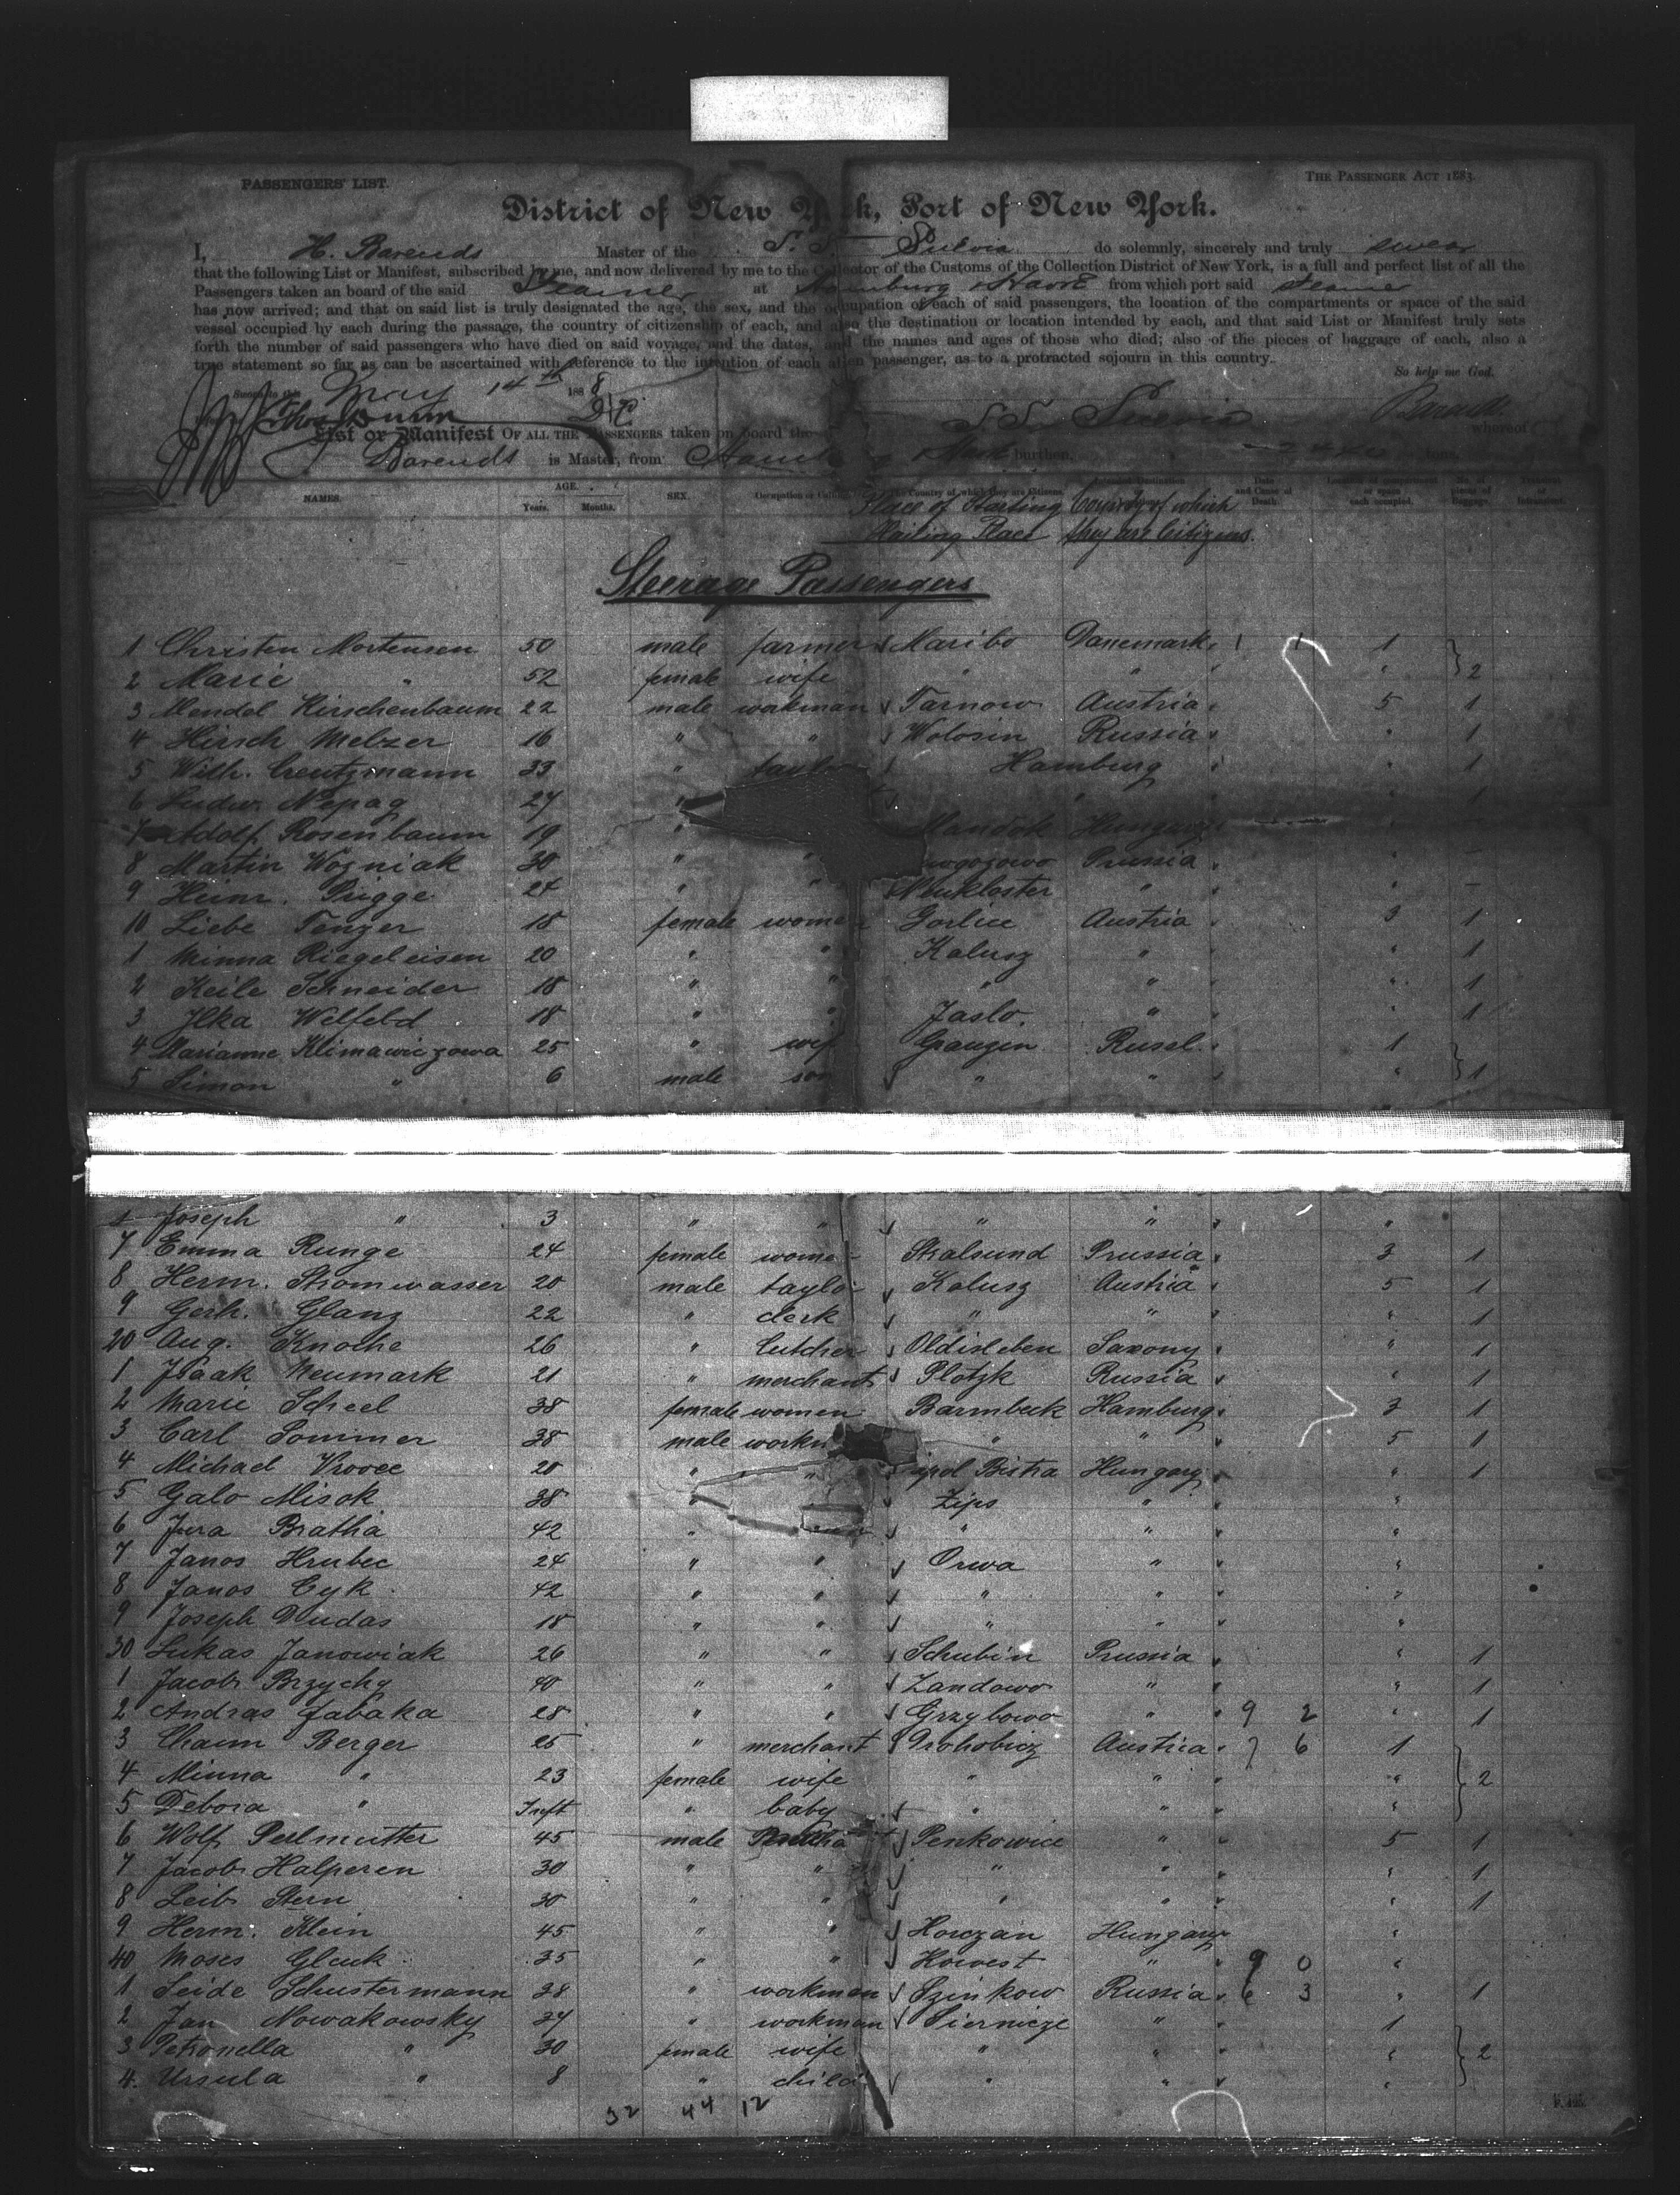 PASSENGERS' LIST. THE PASSENGER ACT 1883.
District of New York, Port of New York.
I, H. Barends Master of the S. S. Suevia do solemnly, sincerely and truly swear
that the following List or Manifest, subscribed by me, and now delivered by me to the Collector of the Customs of the Collection District of New York, is a full and perfect list of all the
Passengers taken on board of the said Steamer at Hamburg & Havre from which port said Steamer
has now arrived; and that on said list is truly designated the age, the sex, and the occupation of each of said passengers, the location of the compartments or space of the said
vessel occupied by each during the passage, the country of citizenship of each, and also the destination or location intended by each, and that said List or Manifest truly sets
forth the number of said passengers who have died on said voyage, and the dates, and the names and ages of those who died; also of the pieces of baggage of each, also a
true statement so far as can be ascertained with reference to the intention of each alien passenger, as to a protracted sojourn in this country.
So help me God.
Sworn to this May 14th 1888
List or Manifest OF ALL THE PASSENGERS taken on board the S S Suevia whereof
Barends is Master, from Hamburg Havre burthen, tons.
NAMES. AGE. Years. Months. SEX. Occupation or Calling. The Country of which they are Citizens. Intended Destination Date and Cause of Death. Location of compartment or space each occupied. No. of pieces of Baggage.
Place of Starting Country of which
Hailing Place they are Citizens.
Steerage Passengers
1 Christen Mortensen 50 male farmer Maribo Danemark 1
2 Marie " 52 female wife " " " 2
3 Mendel Hirschenbaum 22 male workman Tarnow Austria 5 1
4 Hirsch Melzer 16 " " Wolosin Russia " 1
5 Wilh. Creutzmann 33 " taylor Hamburg " 1
6 Ludw. Nepag 27 " " 1
7 Adolf Rosenbaum 19 " Mandok Hungary " -
8 Martin Wozniak 30 " " Prussia " -
9 Heinr. Prigge 24 " " Neukloster " " -
10 Liebe Tenzer 18 female women Gorlice Austria 3 1
1 Minna Riegeleisen 20 " " Kalusz " " 1
2 Keile Schneider 18 " " " " " 1
3 Ilka Welfeld 18 " " Jaslo. " " 1
4 Marianne Klimawiczowa 25 " wife Graugen Russl. 1
5 Simon " 6 male son " " " 1
Joseph " 3 " " " " "
7 Emma Runge 24 female women Stralsund Prussia 3 1
8 Herm. Stromwasser 20 male taylor Kalusz Austria 5 1
9 Gerh. Glanz 22 " clerk " " " 1
20 Aug. Knoche 26 " butcher Oldisleben Saxony " 1
1 Isaak Neumark 21 " merchant Plotzk Russia " 1
2 Marie Scheel 38 female women Barmbeck Hamburg 3 1
3 Carl Sommer 38 male workm " " 5 1
4 Michael Vrovec 20 " " Bistra Hungary " 1
5 Galo Misok 38 " Zips " "
6 Jura Bratha 42 " " " " "
7 Janos Hrubec 24 " " Orwa " "
8 Janos Cyk 42 " " " " "
9 Joseph Dudas 18 " " " " "
30 Lukas Janowiak 26 " " Schubin Prussia " 1
1 Jacob Brzychy 40 " " Zandowo " " 1
2 Andras Jabaka 28 " " Grzybowo " 9 2 " 1
3 Chaim Berger 25 " merchant Drohobicz Austria 7 6 1
4 Minna " 23 female wife " " " 2
5 Debora " Inft " baby " " "
6 Wolf Perlmutter 45 male Penkowice " 5 1
7 Jacob Halperen 30 " " " " " 1
8 Leib Stern 30 " " " " " 1
9 Herm. Klein 45 " " Horczan Hungary "
40 Moses Gluck 35 " " Howest " 9 0 "
1 Seide Schustermann 28 " workman Szinkow Russia 6 3 " 1
2 Jan Nowakowsky 27 " workman Siernicze " 1
3 Petronella " 30 female wife " " " 2
4. Ursula " 8 " child " " "
32 44 12